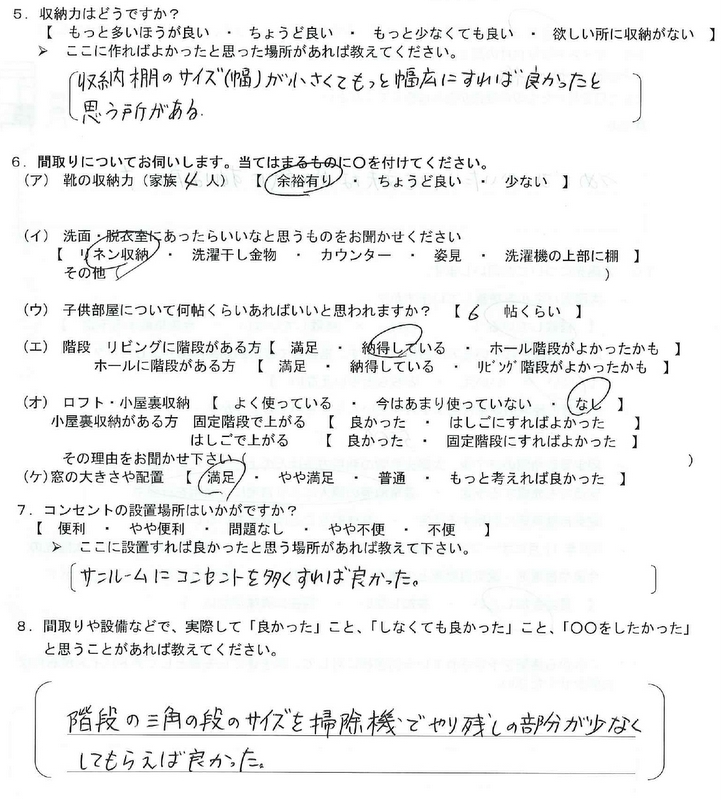 ５．収納力はどうですか？
【　もっと多いほうが良い　・　ちょうど良い　・　もっと少なくても良い　・　欲しい所に収納がない　】
➢　ここに作ればよかったと思った場所があれば教えてください。
収納棚のサイズ(幅)が小さくてもっと幅広にすれば良かったと
思う所がある.
６．間取りについてお伺いします。当てはまるものに〇を付けてください。
（ア）　靴の収納力（家族 4 人）　【　余裕有り　・　ちょうど良い　・　少ない　】
（イ）　洗面・脱衣室にあったらいいなと思うものをお聞かせください
【　リネン収納　・　洗濯干し金物　・　カウンター　・　姿見　・　洗濯機の上部に棚　】
その他（　　　）
（ウ）　子供部屋について何帖くらいあればいいと思われますか？　【　6　帖くらい　】
（エ）　階段　リビングに階段がある方【　満足　・　納得している　・　ホール階段がよかったかも　】
ホールに階段がある方　【　満足　・　納得している　・　ﾘﾋﾞﾝｸﾞ階段がよかったかも　】
（オ）　ロフト・小屋裏収納　【　よく使っている　・　今はあまり使っていない　・　なし　】
小屋裏収納がある方　固定階段で上がる　【　良かった　・　はしごにすればよかった　】
はしごで上がる　【　良かった　・　固定階段にすればよかった　】
その理由をお聞かせ下さい（　　　）
（ケ）窓の大きさや配置　【　満足　・　やや満足　・　普通　・　もっと考えれば良かった　】
７．コンセントの設置場所はいかがですか？
【　便利　・　やや便利　・　問題なし　・　やや不便　・　不便　】
➢　ここに設置すれば良かったと思う場所があれば教えて下さい。
サンルームにコンセントを多くすれば良かった。
８．間取りや設備などで、実際して「良かった」こと、「しなくても良かった」こと、「〇〇をしたかった」
と思うことがあれば教えてください。
階段の三角の段のサイズを掃除機でやり残しの部分が少なく
してもらえば良かった。